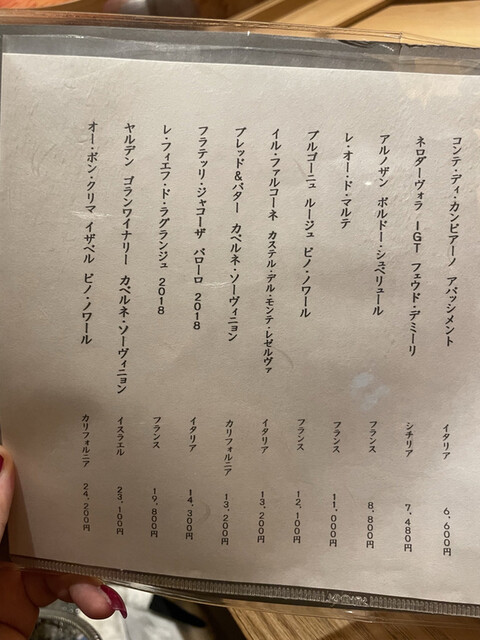 コンテ・ディ・カンピアーノ アパッシメント イタリア 6,600円
ネロダーヴォラ IGT フェウド・デミーリ シチリア 7,480円
アルノザン ボルドー・シュペリュール フランス 8,800円
レ・オー・ド・マルテ フランス 11,000円
ブルゴーニュ ルージュ ピノ・ノワール フランス 12,100円
イル・ファルコーネ カステル・デル・モンテ・レゼルヴァ イタリア 13,200円
ブレッド&バター カベルネ・ソーヴィニヨン カリフォルニア 13,200円
フラテッリ・ジャコーザ バローロ 2018 イタリア 14,300円
レ・フィエフ・ド・ラグランジュ 2018 フランス 19,800円
ヤルデン ゴランワイナリー カベルネ・ソーヴィニョン イスラエル 23,100円
オー・ボン・クリマ イザベル ピノ・ノワール カリフォルニア 24,200円